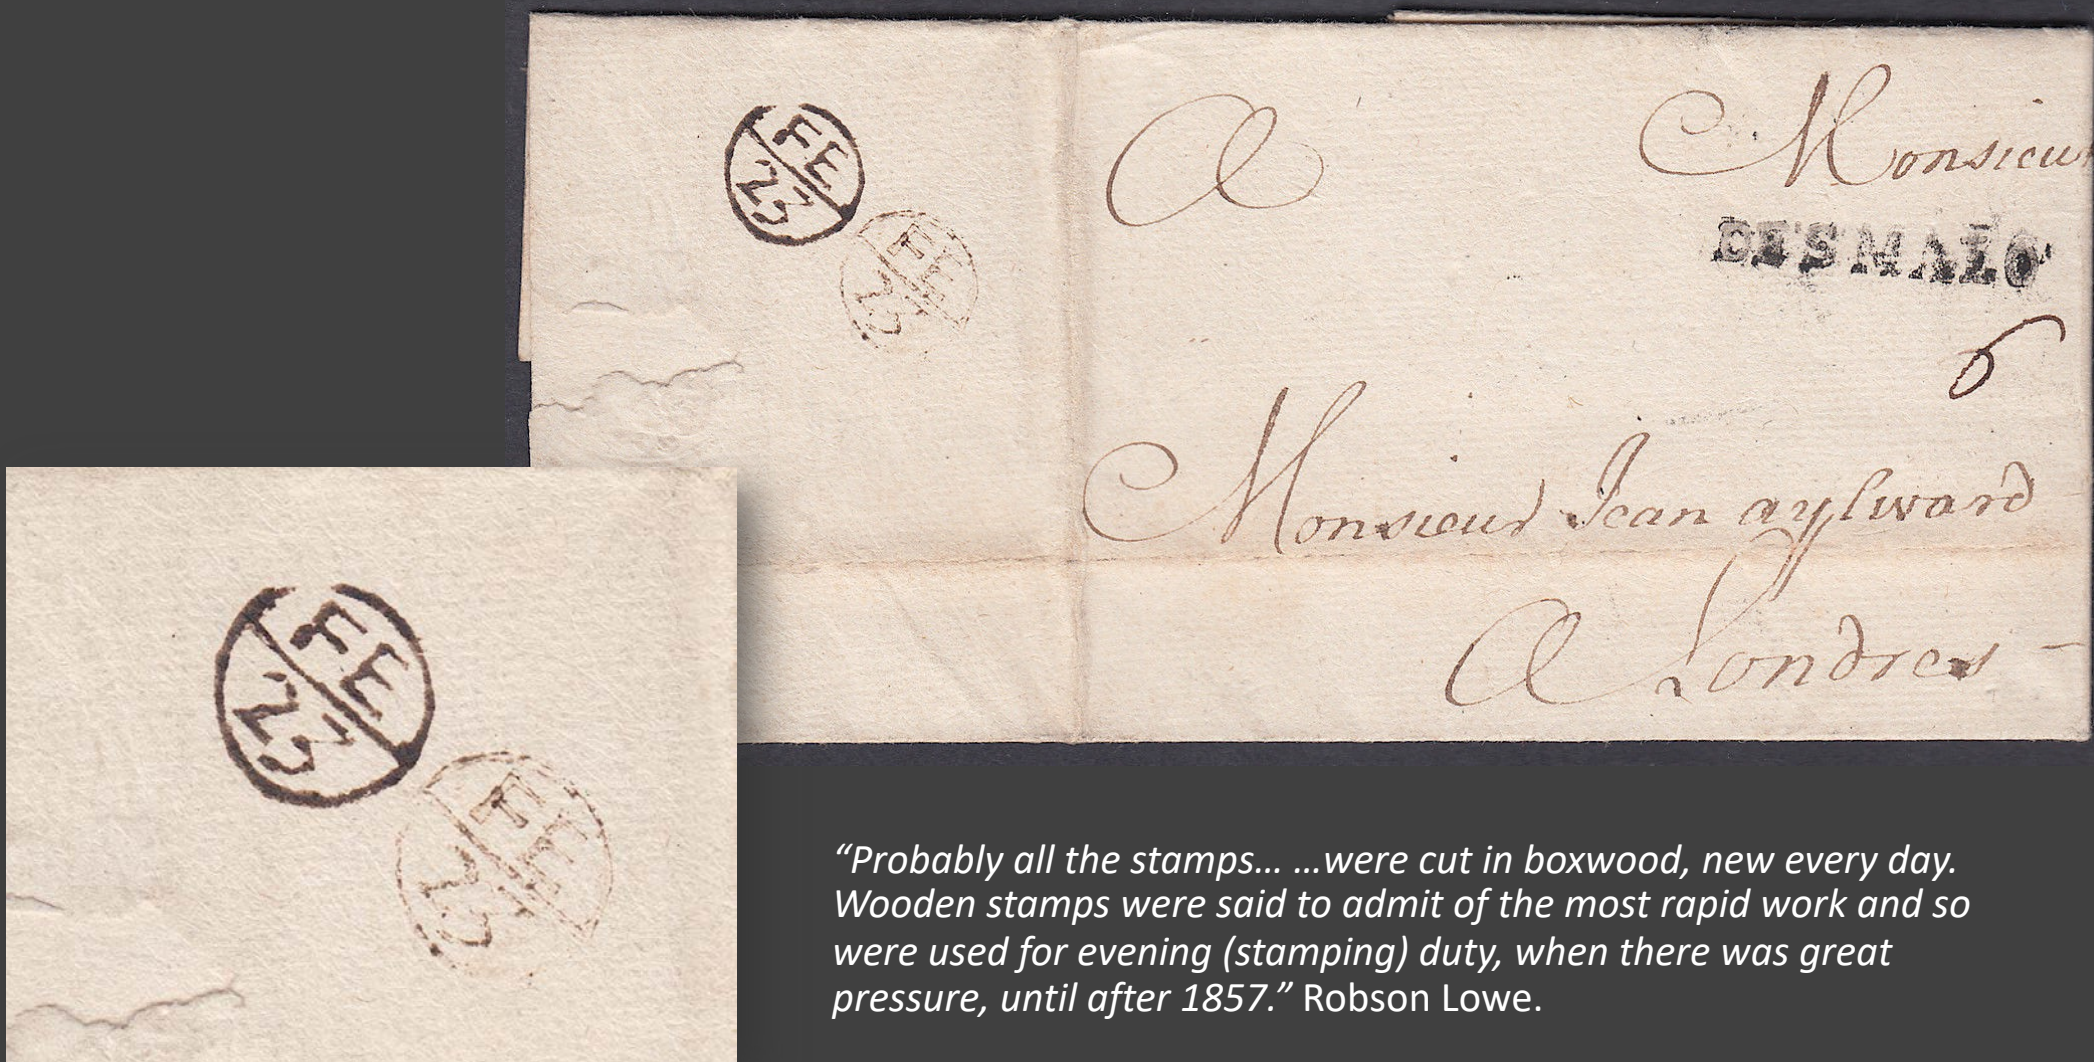 FE
23
FE
23
A Monsieur
DE S MALO
6
Monsieur Jean aylward
A Londres
FE
23
FE
23
“Probably all the stamps... ...were cut in boxwood, new every day.
Wooden stamps were said to admit of the most rapid work and so
were used for evening (stamping) duty, when there was great
pressure, until after 1857.” Robson Lowe.